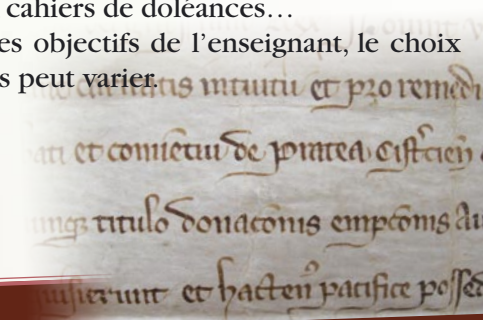 cahiers de doléances…
es objectifs de l'enseignant, le choix
s peut varier.
tis intuitu et pro remedi
et conventui de pratea cistercien
titulo donacionis empcionis au
et hacten pacifice possed